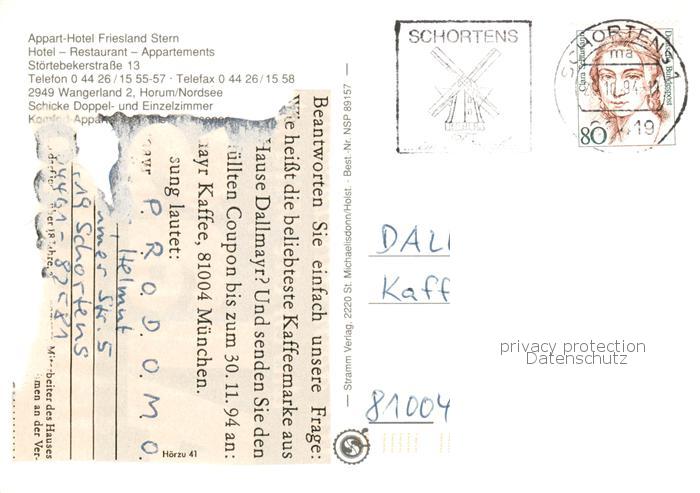 Appart-Hotel Friesland Stern
Hotel – Restaurant – Appartements
Störtebekerstraße 13
Telefon 0 44 26 / 15 55-57 · Telefax 0 44 26 / 15 58
2949 Wangerland 2, Horum/Nordsee
Schicke Doppel- und Einzelzimmer
Beantworten Sie einfach unsere Frage:
Wie heißt die beliebteste Kaffeemarke aus
Hause Dallmayr? Und senden Sie den
üllten Coupon bis zum 30. 11. 94 an:
ayr Kaffee, 81004 München.
sung lautet:
ayr P R O D O M O
Helmut
Str. 5
19 Schortens
04461 - 82581
Mitarbeiter des Hauses
men an der Ver-
Hörzu 41
— Stramm Verlag, 2220 St. Michaelisdonn/Holst. · Best.-Nr. NSP 89157 —
SCHORTENS
SCHORTENS 1
ma
Deutsche Bundespost
80
26419
DALL
Kaff
81004
privacy protection
Datenschutz